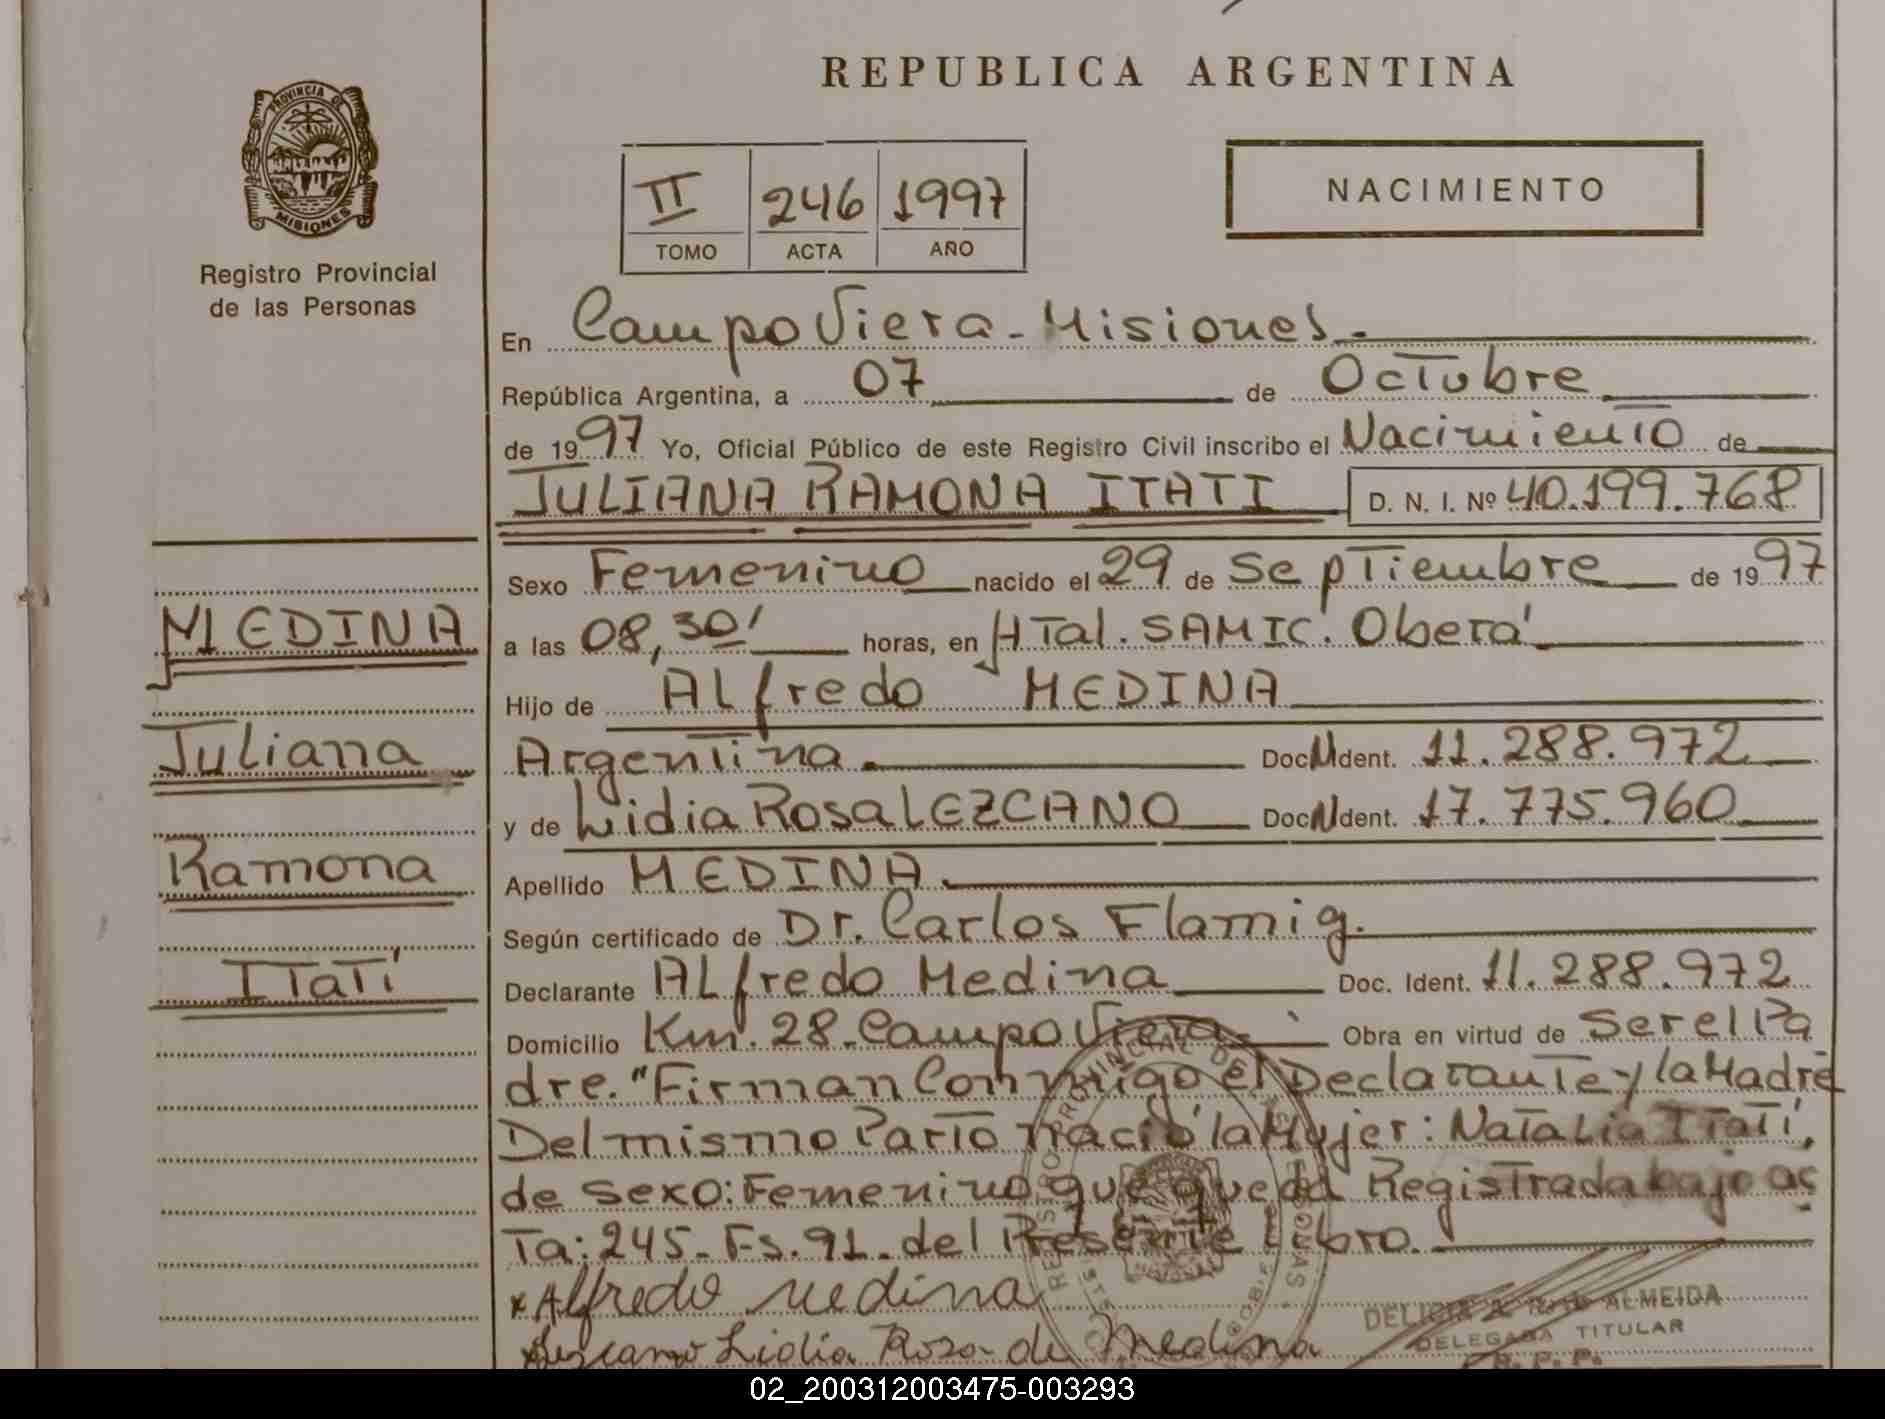 REPUBLICA ARGENTINA
PROVINCIA DE
MISIONES
Registro Provincial
de las Personas
II 246 1997
TOMO ACTA AÑO
NACIMIENTO
En Campo Viera - Misiones.-
República Argentina, a 07 de Octubre
de 1997 Yo, Oficial Público de este Registro Civil inscribo el Nacimiento de
JULIANA RAMONA ITATI D. N. I. Nº 40.199.768
Sexo Femenino nacido el 29 de septiembre de 1997
MEDINA
a las 08,30' horas, en HTal. SAMIC. Oberá
Hijo de Alfredo MEDINA
Juliana
Argentina Doc N Ident. 11.288.972
y de Lidia Rosa LEZCANO Doc N Ident. 17.775.960
Ramona
Apellido MEDINA.
Según certificado de Dr. Carlos Flamig.
Itatí
Declarante Alfredo Medina Doc. Ident. 11.288.972
Domicilio Km. 28 - Campo Viera - Obra en virtud de ser el Pa
dre. "Firman Conmigo el Declarante y la Madre
Del mismo Parto nació la Mujer: Natalia Itatí,
de sexo: Femenino que queda Registrada bajo ac
ta: 245 - Fs. 91 - del Presente Libro.
x Alfredo Medina
Lezcano Lidia Rosa de Medina
REGISTRO PROVINCIAL DE LAS PERSONAS
ALMEIDA
DELEGADA TITULAR
R. P. P.
02_200312003475-003293